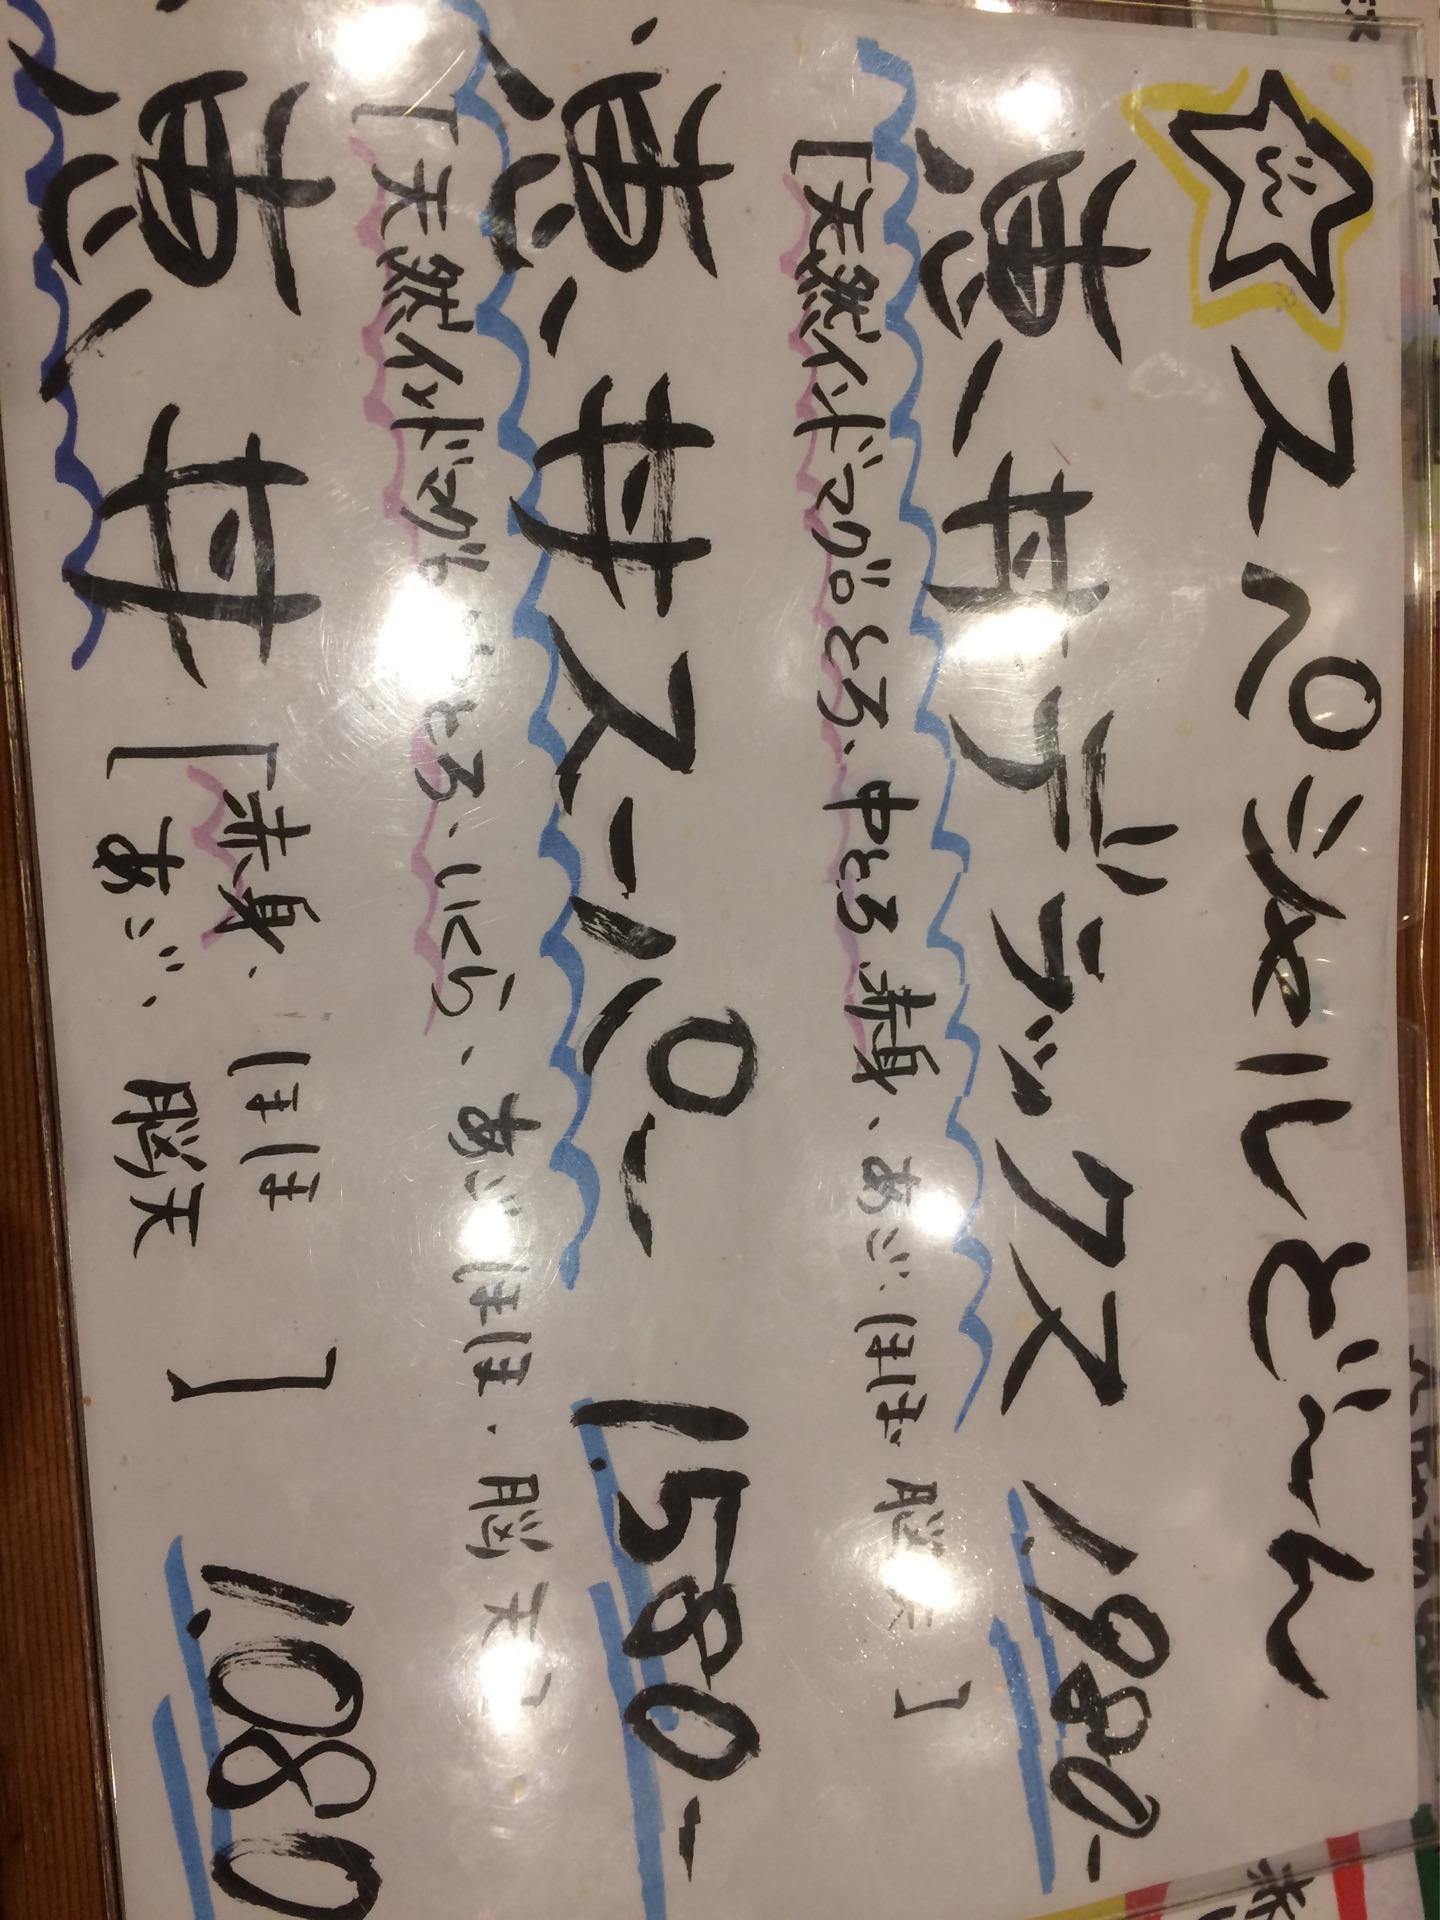 スペシャルどん
恵丼デラックス 1,980-
[天然インドマグロとろ、中とろ、赤身、あじ、ほほ、脳天]
恵丼スーパー 1,580-
[天然インドマグロ とろ、いくら、あじ、ほほ、脳天]
恵丼 [赤身、ほほ
あじ、脳天] 1,080